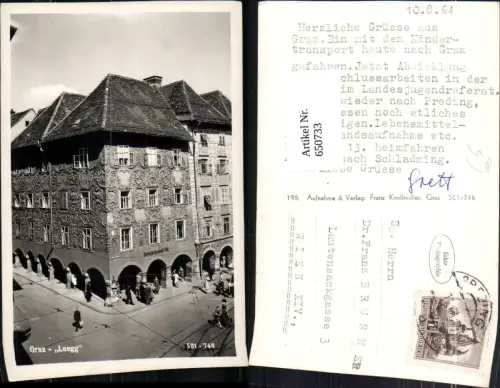 Graz - „Luegg"
501 - 746
10.8.64
Herzliche Grüsse aus
Graz.Bin mit dem Kinder-
transport heute nach Graz
gefahren.Jetzt Abwicklung
chlussarbeiten in der
im Landesjugendreferat.
wieder nach Preding,
essen noch etliches
igen.Lebensmittel-
andsaufnahme etc.
13. heimfahren
nach Schladming.
Grüsse
Artikel Nr.
650733
195 Aufnahme & Verlag: Franz Knollmüller, Graz 501-746
Herrn
Dr.Franz BRUNNER
Lautensackgasse 3
WIEN XIV.,